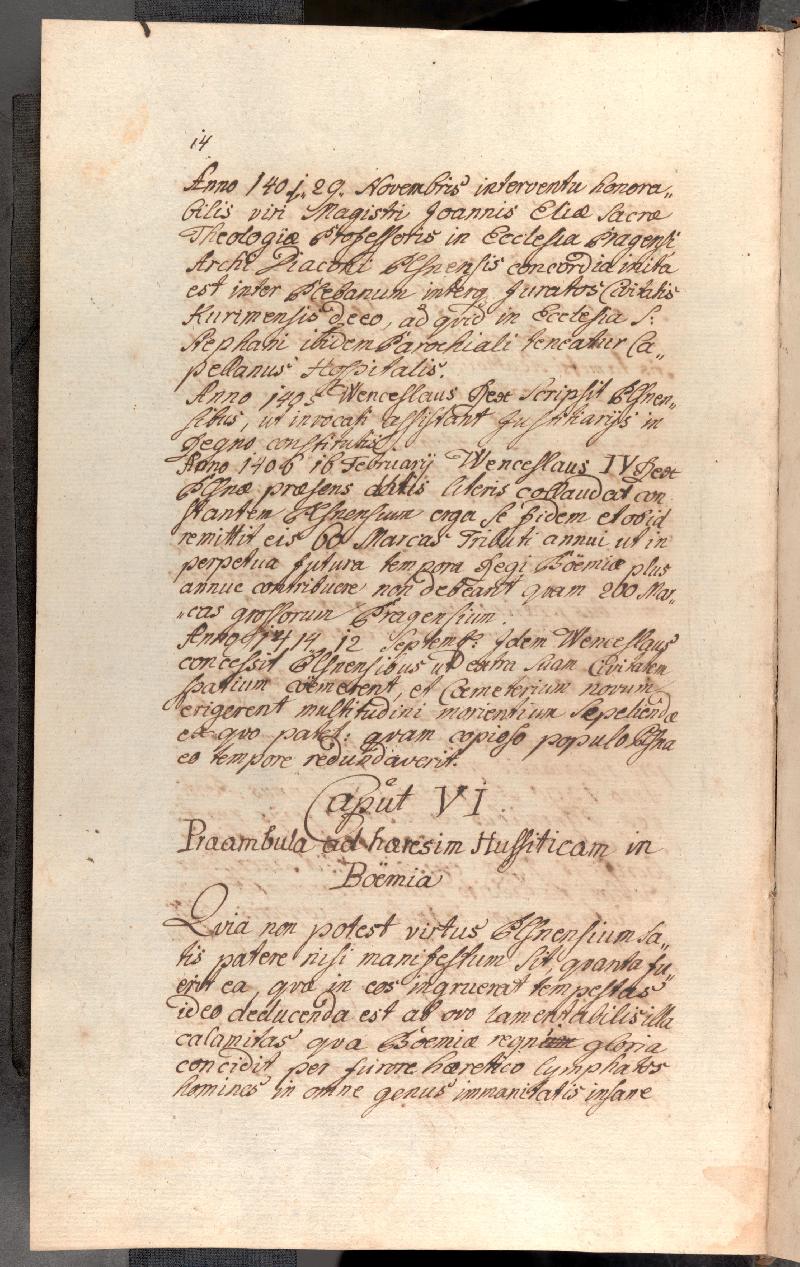 14
Anno 1401. 29. Novembris interventu honora„
bilis viri Magistri Joannis Eliæ Sacræ
Theologiæ Professoris in Ecclesia Pragensi
Archi Diaconi Plsnensis concordia inita
est inter Plebanum interq Juratos Civitatis
Kurimensis deeo, ad qvid in Ecclesia S:
Stephani ibidem Parochiali teneatur Ca„
pellanus Hospitalis.
Anno 1405 Wenceslaus Rex Scripsit Plsnen„
sibus, ut invocati assistant Justitiarijs in
Regno constitutis.
Anno 1406 16 Februarij Wenceslaus IV Rex
Plsnæ præsens datis literis collaudat con
stantem Plsnensium erga Se fidem et obid
remittit eis 60 Marcas Tributi annui ut in
perpetua futura tempora Regi Böemiæ plus
annue contribuere non debeant qvam 200 Mar„
„cas grossorum Pragensium.
Anno 1414 12 Septemb: Idem Wenceslaus
concessit Plsnensibus ut extra Suam Civitatem
spatium coëmerent, et Cæmeterium novum
erigerent multitudini morientium Sepeliendæ
ex qvo patet: qvam copioso populo Plsna
eo tempore redundaverit.
Caput VI
Præambula ad hæresim Hussiticam in
Boëmia
Qvia non potest virtus Plsnensium Sa„
tis patere nisi manifestum Sit, qvanta fu„
erit ea, qvæ in eos ingruerat tempestas
ideo deducenda est ab ovo lamentabilis illa
calamitas qva Boemiæ regni gloria
concidit per furore hæretico lymphatos
homines in omne genus immanitatis insane